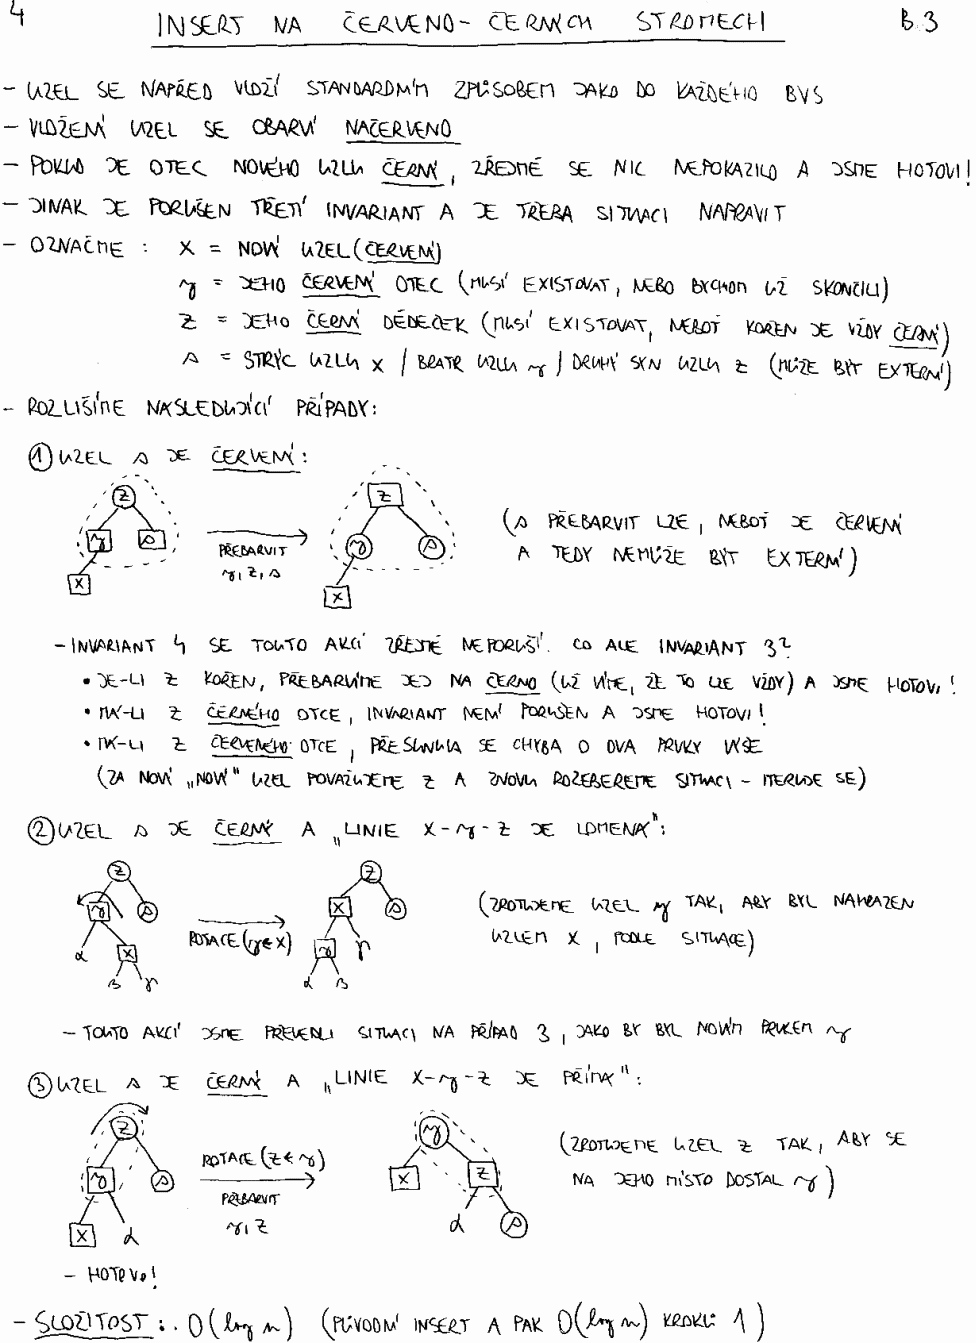 4 INSERT NA ČERVENO-ČERNÝCH STROMECH B.3
- UZEL SE NAPŘED VLOŽÍ STANDARDNÍM ZPŮSOBEM JAKO DO KAŽDÉHO BVS
- VLOŽENÝ UZEL SE OBARVÍ NAČERVENO
- POKUD JE OTEC NOVÉHO UZLU ČERNÝ, ZŘEJMĚ SE NIC NEPOKAZILO A JSME HOTOVI!
- JINAK JE PORUŠEN TŘETÍ INVARIANT A JE TŘEBA SITUACI NAPRAVIT
- OZNAČME : X = NOVÝ UZEL (ČERVENÝ)
y = JEHO ČERVENÝ OTEC (MUSÍ EXISTOVAT, NEBO BYCHOM UŽ SKONČILI)
Z = JEHO ČERNÝ DĚDEČEK (MUSÍ EXISTOVAT, NEBOŤ KOŘEN JE VŽDY ČERNÝ)
s = STRÝC UZLU X / BRATR UZLU y / DRUHÝ SYN UZLU Z (MŮŽE BÝT EXTERNÍ)
- ROZLIŠÍME NÁSLEDUJÍCÍ PŘÍPADY:
① UZEL s JE ČERVENÝ:
z z
y s PŘEBARVIT y s
y, z, s
x x
(s PŘEBARVIT LZE, NEBOŤ JE ČERVENÝ
A TEDY NEMŮŽE BÝT EXTERNÍ)
- INVARIANT 4 SE TOUTO AKCÍ ZŘEJMĚ NEPORUŠÍ. CO ALE INVARIANT 3?
• JE-LI Z KOŘEN, PŘEBARVÍME JEJ NA ČERNO (UŽ VÍME, ŽE TO LZE VŽDY) A JSME HOTOVI!
• MÁ-LI Z ČERNÉHO OTCE, INVARIANT NENÍ PORUŠEN A JSME HOTOVI!
• MÁ-LI Z ČERVENÉHO OTCE, PŘESUNULA SE CHYBA O DVA PRVKY VÝŠE
(ZA NOVÝ „NOVÝ" UZEL POVAŽUJEME Z A ZNOVU ROZEBEREME SITUACI - ITERUJE SE)
② UZEL s JE ČERNÝ A „LINIE X-y-Z JE LOMENÁ":
z z
y s ROTACE (y←x) x s
α x y γ
β γ α β
(ZROTUJEME UZEL y TAK, ABY BYL NAHRAZEN
UZLEM X, PODLE SITUACE)
- TOUTO AKCÍ JSME PŘEVEDLI SITUACI NA PŘÍPAD 3, JAKO BY BYL NOVÝM PRVKEM y
③ UZEL s JE ČERNÝ A „LINIE X-y-Z JE PŘÍMÁ":
z y
y s ROTACE (z←y) x z
PŘEBARVIT
x α y, z α s
(ZROTUJEME UZEL Z TAK, ABY SE
NA JEHO MÍSTO DOSTAL y)
- HOTOVO!
- SLOŽITOST :. O(log n) (PŮVODNÍ INSERT A PAK O(log n) KROKŮ 1)